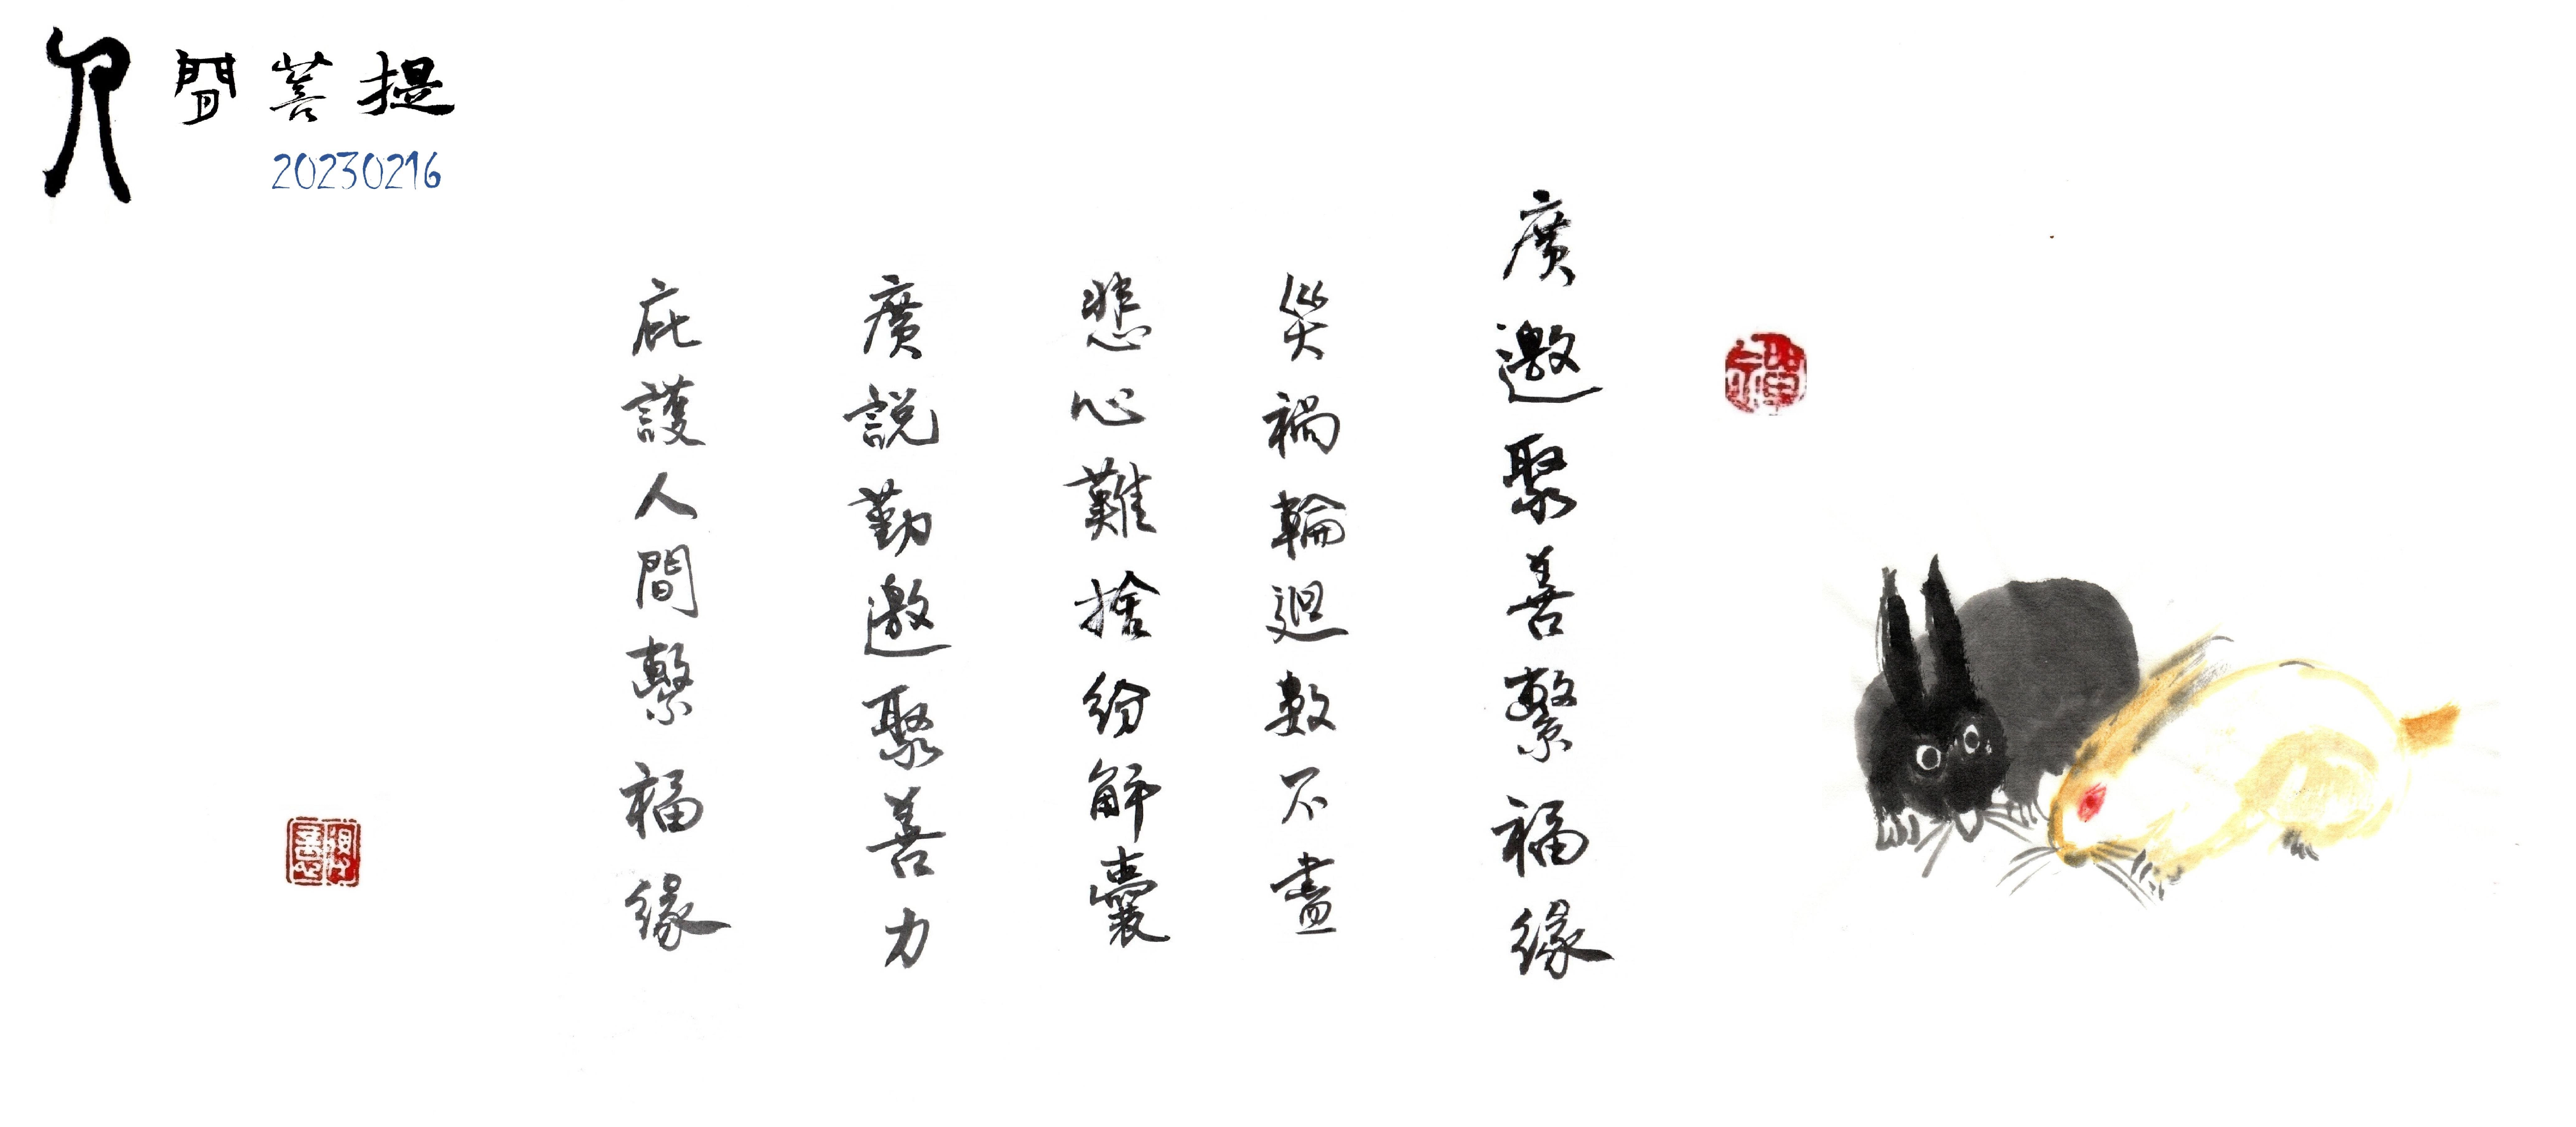 人間菩提
20230216
廣邀聚善繫福緣
災禍輪迴數不盡
悲心難捨紛解囊
廣說勤邀聚善力
庇護人間繫福緣